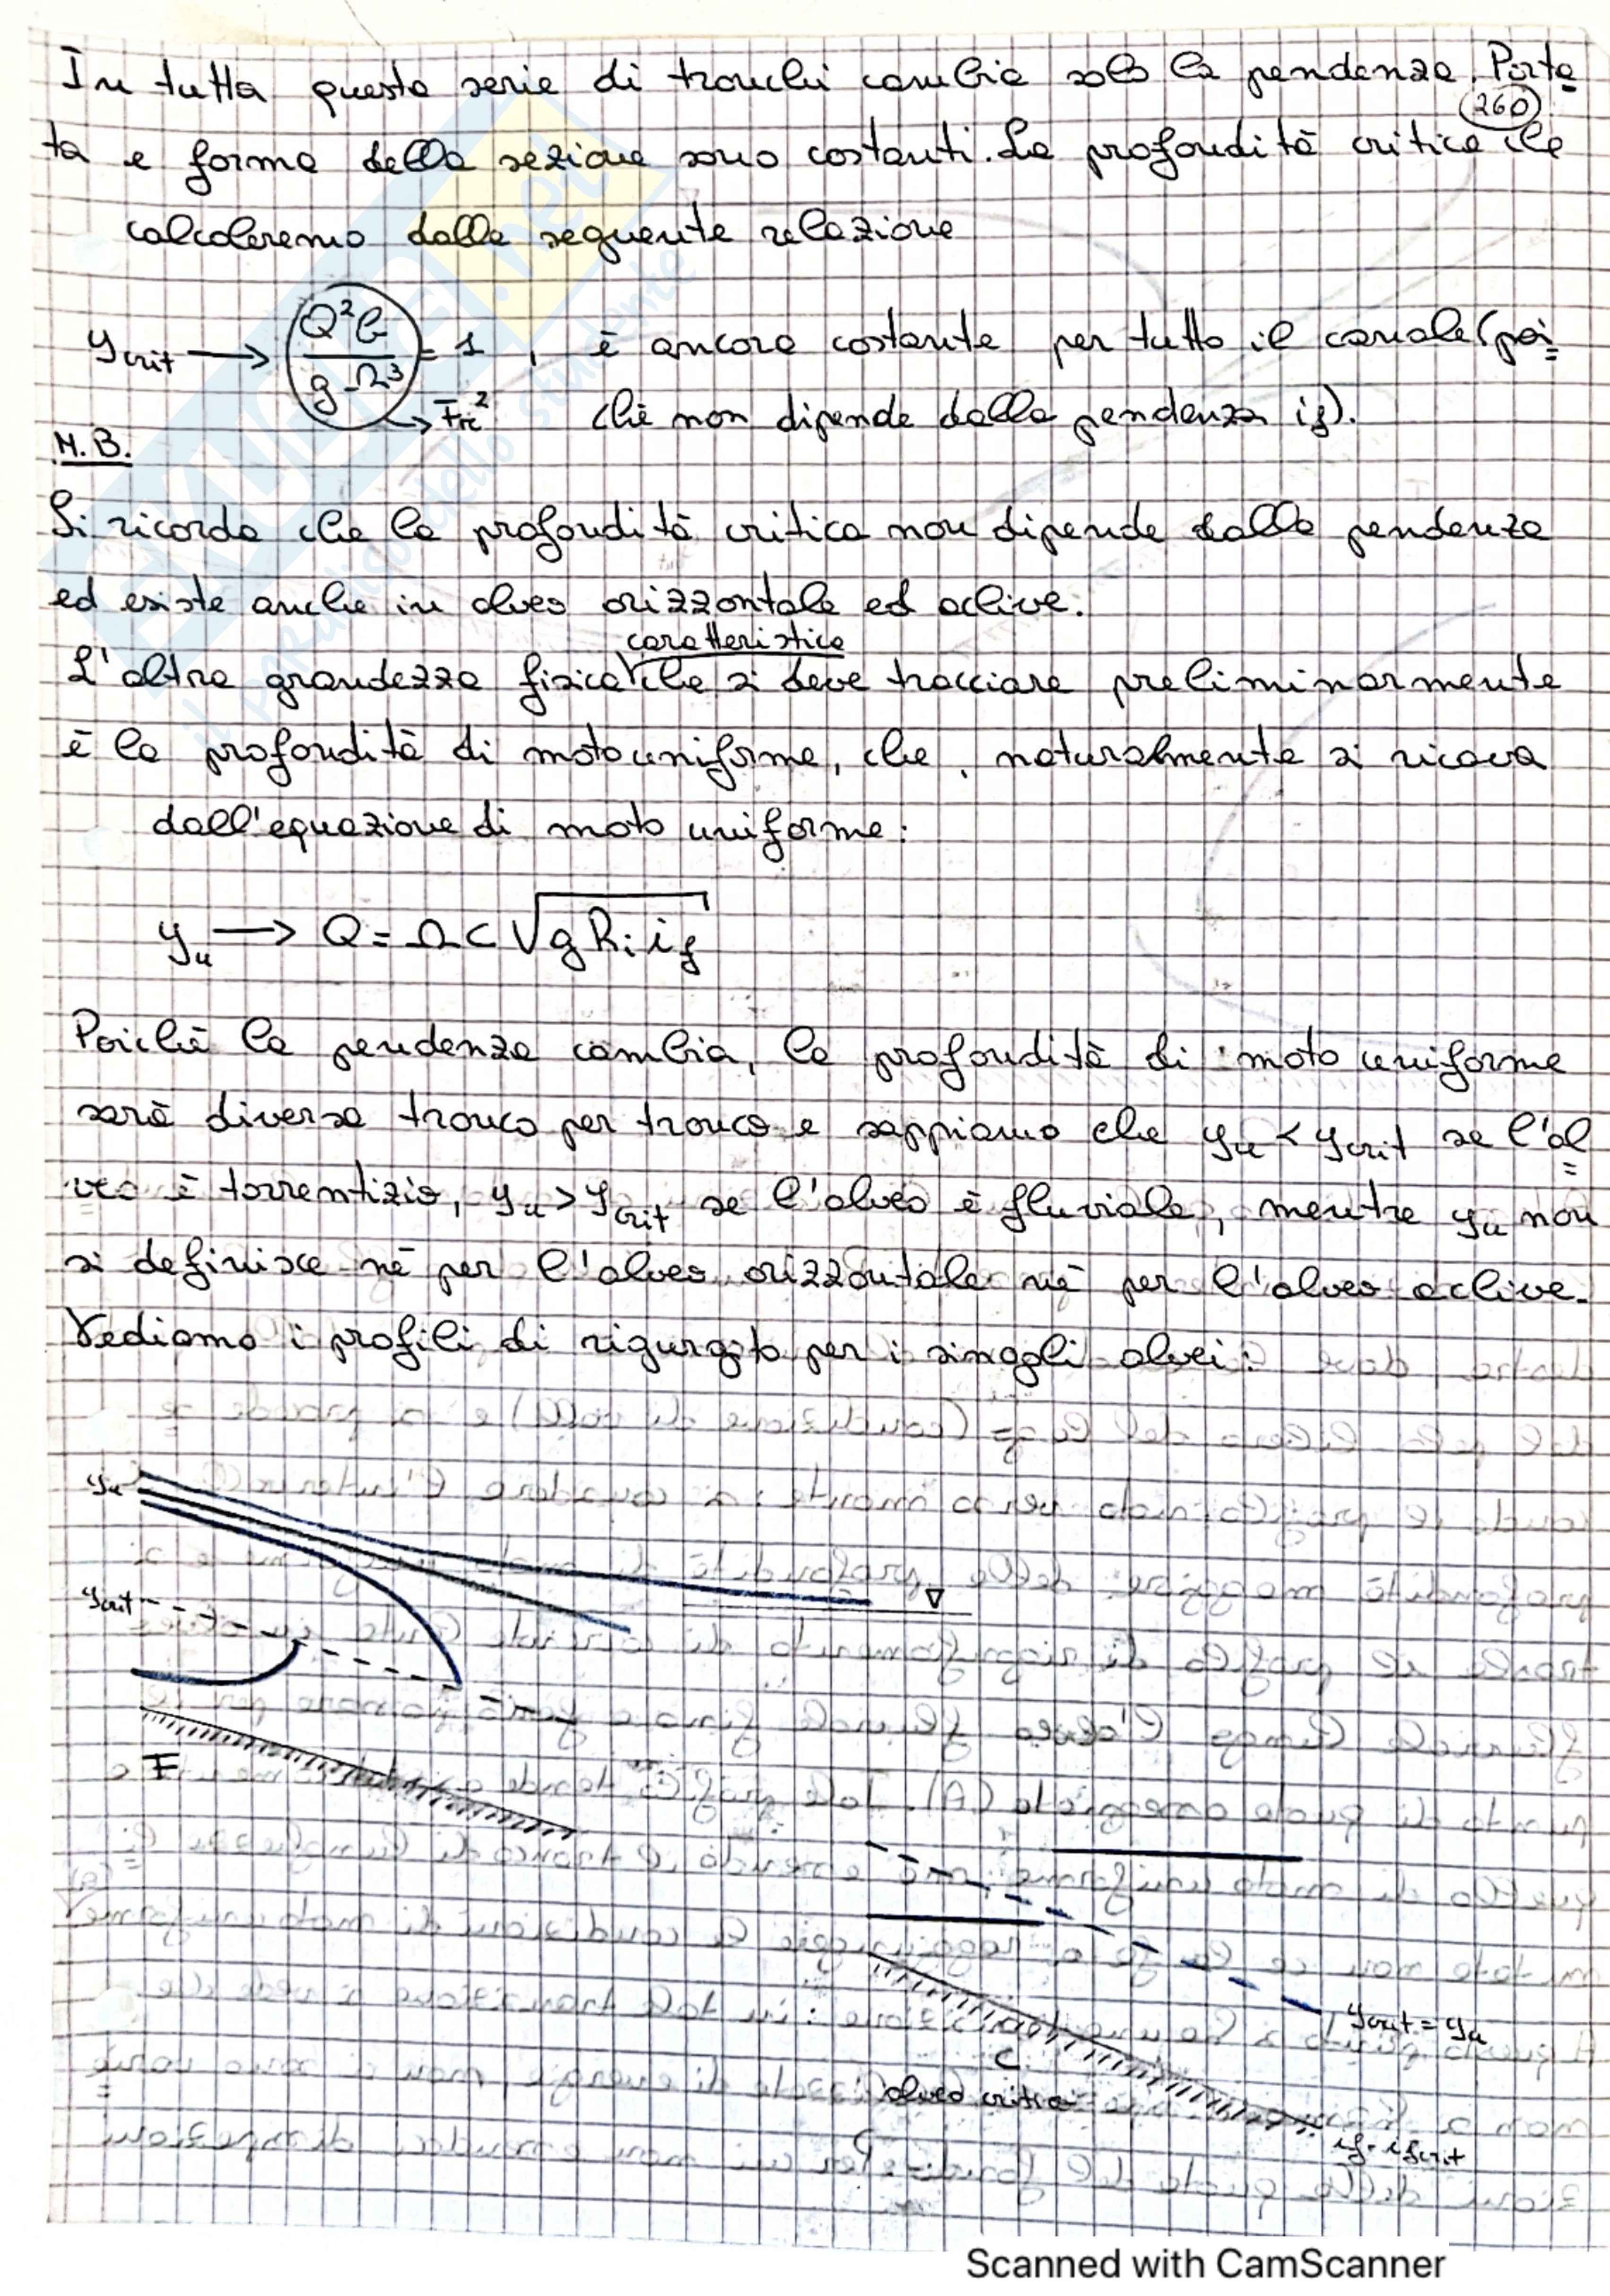 In tutta questa serie di tronchi cambia solo la pendenza. Porta
260
ta e forma della sezione sono costanti. La profondità critica che
calcoleremo dalla seguente relazione
y_crit → Q²b / gΩ³ = 1 , è ancora costante per tutto il canale (poi
→ Fr² chè non dipende dalla pendenza if).
N.B.
Si ricorda che la profondità critica non dipende dalla pendenza
ed esiste anche in alveo orizzontale ed aclive.
caratteristica
L'altra grandezza fisica che si deve tracciare preliminarmente
è la profondità di moto uniforme, che, naturalmente si ricava
dall'equazione di moto uniforme:
y_u → Q = Ω C √(g Ri if)
Poichè la pendenza cambia, la profondità di moto uniforme
sarà diversa tronco per tronco e sappiamo che y_u < y_crit se l'al
veo è torrentizio, y_u > y_crit se l'alveo è fluviale, mentre y_u non
si definisce nè per l'alveo orizzontale nè per l'alveo aclive.
Vediamo i profili di rigurgito per i singoli alvei:
y_u
y_crit
F
y_crit = y_u
C
alveo critico
if = if crit
SKUOLA.net
il paradiso dello studente
Scanned with CamScanner